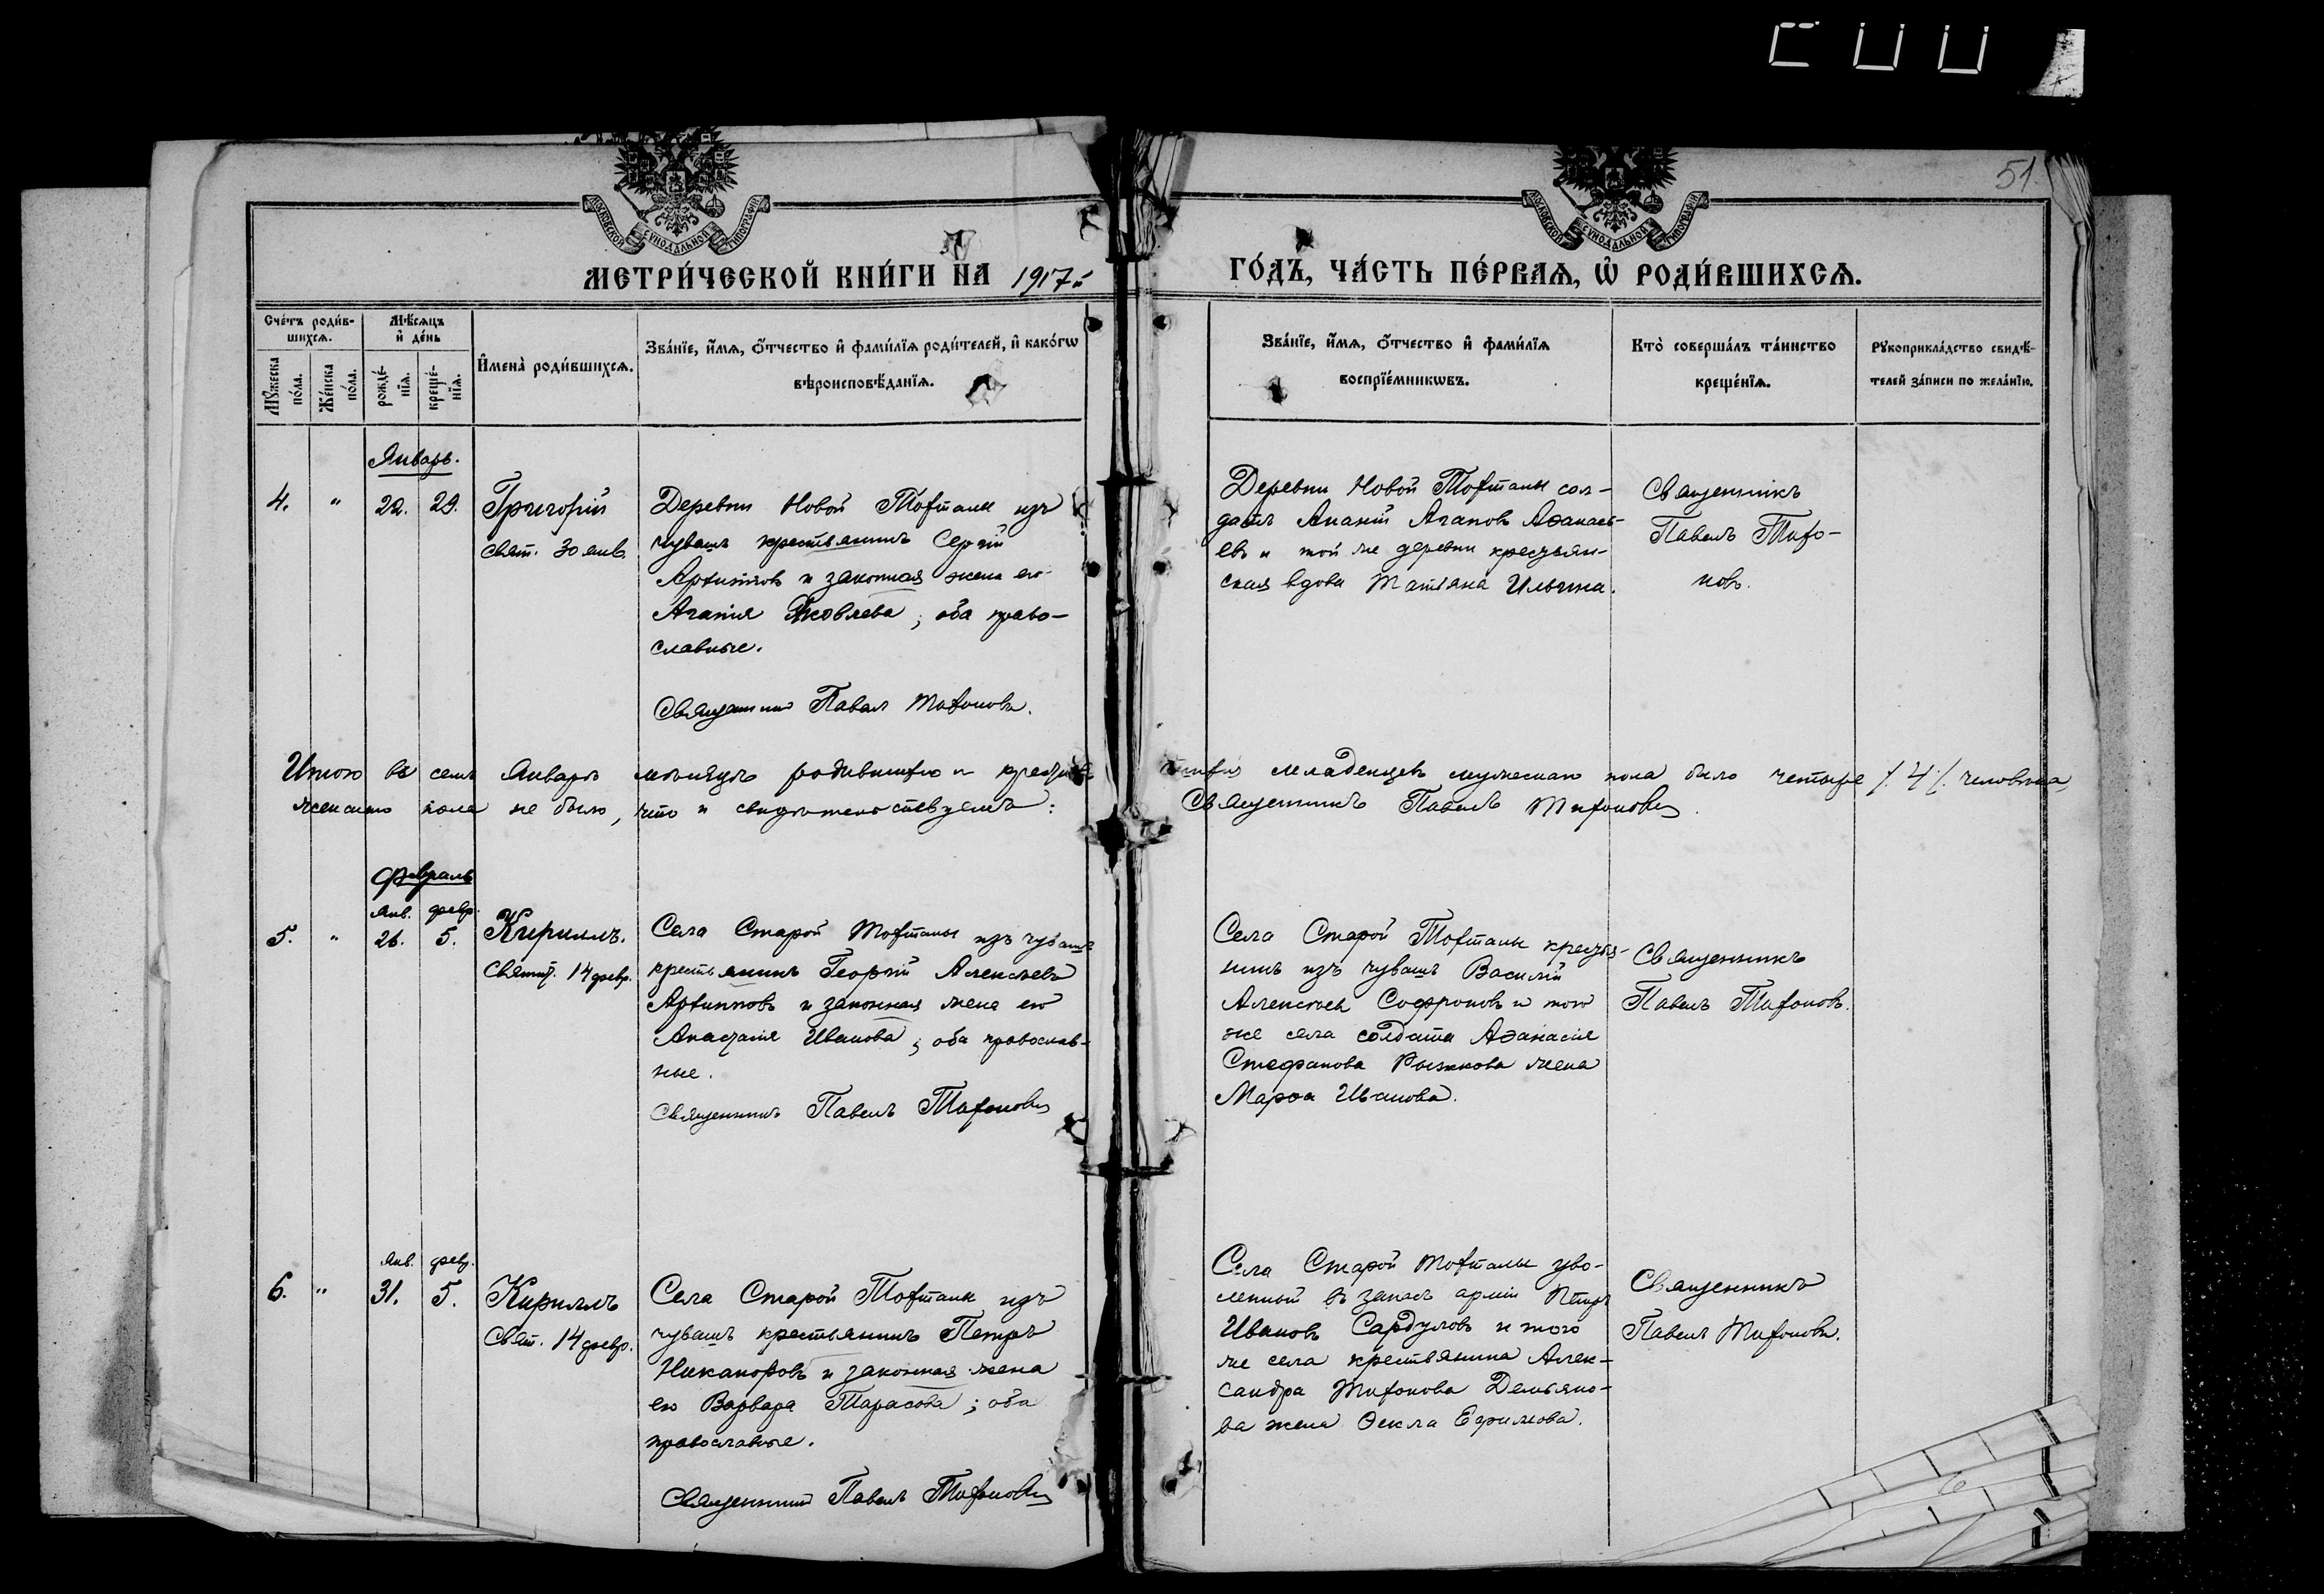 51
МОСКОВСКОЙ СУНОДАЛЬНОЙ ТИПОГРАФІИ
МОСКОВСКОЙ СУНОДАЛЬНОЙ ТИПОГРАФІИ
МЕТРИ́ЧЕСКОЙ КНИ́ГИ НА 1917й
ГО́ДЪ, ЧА́СТЬ ПЕ́РВАѦ, Ѡ РОДИ́ВШИХСѦ.
Сче́тъ роди́в-
шихсѧ.
Мꙋжеска по́ла.
Же́нска по́ла.
Мѣ́сѧцъ
и҆ де́нь
рожде́-
нїѧ.
креще́-
нїѧ.
И҆мена̀ роди́вшихсѧ.
Зва́нїе, и҆́мѧ, ѻ҆́тчество и҆ фами́лїѧ роди́телей, и҆ како́гѡ
вѣроисповѣ́данїѧ.
Зва́нїе, и҆́мѧ, ѻ҆́тчество и҆ фами́лїѧ
воспрїе́мникѡвъ.
Кто̀ соверша́лъ та́инство
креще́нїѧ.
Рꙋкоприкла́дство свидѣ́-
телей за́писи по жела́нїю.
Январь.
4. " 22. 29. Григорій
свят. 30 янв.
Деревни Новой Тохталы изъ
чувашъ крестьянинъ Сергій
Архиповъ и законная жена его
Агапія Яковлева; оба право-
славные.
Священникъ Павелъ Тихоновъ.
Деревни Новой Тохталы сол-
датъ Ананій Агаповъ Аѳанась-
евъ и той же деревни крестьян-
ская вдова Татьяна Ильина.
Священникъ
Павелъ Тихо-
новъ.
Итого въ семъ Январѣ мѣсяцѣ родившихся и
младенцевъ мужескаго пола было четыре /. 4 /. человѣка,
женскаго пола не было, что и свидѣтельствуемъ:
Священникъ Павелъ Тихоновъ.
Февраль
янв. февр.
5. " 26. 5. Кириллъ.
Святит. 14 февр.
Села Старой Тохталы изъ чувашъ
крестьянинъ Георгій Алексѣевъ
Архиповъ и законная жена его
Анастасія Иванова; оба православ-
ные.
Священникъ Павелъ Тихоновъ
Села Старой Тохталы крестья-
нинъ изъ чувашъ Василій
Алексѣевъ Софроновъ и того
же села солдата Аѳанасія
Стефанова Рыжкова жена
Марѳа Иванова.
Священникъ
Павелъ Тихоновъ.
янв. февр.
6. " 31. 5. Кириллъ
Свят. 14 февр.
Села Старой Тохталы изъ
чувашъ крестьянинъ Петръ
Никаноровъ и законная жена
его Варвара Тарасова; оба
православные.
Священникъ Павелъ Тихоновъ
Села Старой Тохталы уво-
ленный въ запасъ арміи Петръ
Ивановъ Сардуловъ и того
же села крестьянина Алек-
сандра Тихонова Демьяно-
ва жена Ѳекла Ефимова.
Священникъ
Павелъ Тихоновъ.